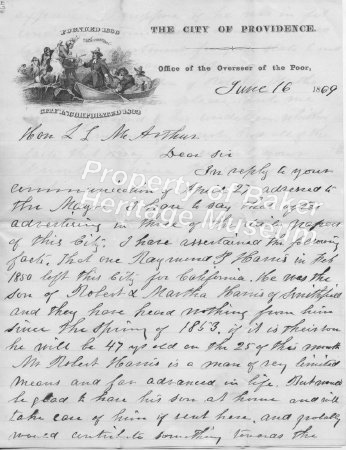 FOUNDED 1636
THE CITY OF PROVIDENCE.
Office of the Overseer of the Poor,
June 16 1869
Hon L L Mc Arthur
Dear Sir
In reply to your
communication of April 27 adressed to
the Mayor I have to say that after
advertising in three of the daily papers
of this City. I have ascertained the following
facts. That one Raymond Harris in Feb
1850 left this City for California. He was the
son of Robert & Martha Harris of Smithfield
and they have heard nothing from him
since the Spring of 1853, if it is their son
he will be 47 yrs old on the 25 of this month
Mr Robert Harris is a man of very limited
means and far advanced in life. But would
be glad to have his son at home and will
take care of him if sent here, and probably
would contribute something towards the
Property of Baker
Heritage Museum